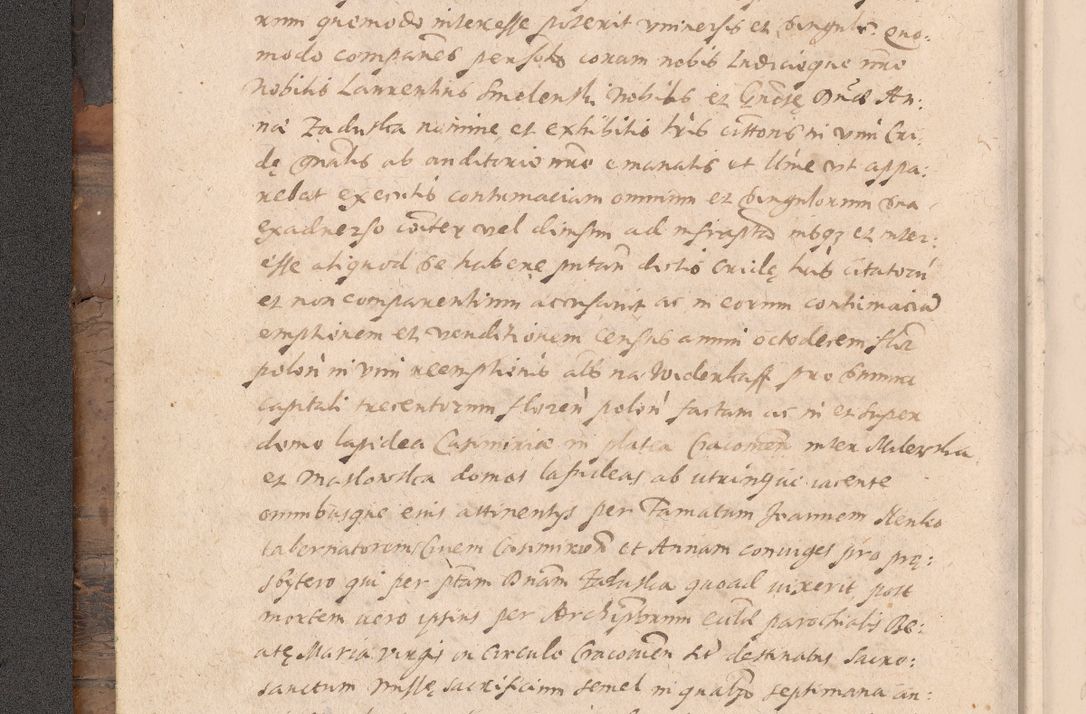 rum quomodo interesse poterit universis et singulis. Quo:
modo comparens personal coram nobis Iudicioque nro
Nobilis Laurentius Smolenski Nobilis et Gnose Dnae An:
nae Zaduska nomine et exhibitis lris cittonis in vim Cri:
dę gnalis ab auditorio nro emanatis et Ume ut appa:
rebat executis contumaciam omnium et singulorum sua
ex adverso coiter vel divisim ad infrapta inboz et inter:
esse aliquod se habere putan dictis Cridę lris citatoru
et non comparentium accusavit ac in eorum contumacia
emptionem et venditionem census annui octodecem flor
polon in vim reemptionis als na Widerkaff pro summa
capitali trecentorum floren polon factam ac in et super
domo lapidea Casimiriae in platea Cracovien inter Milewska
et Maslowska domos lapideas ab utrinque iacente
omnibusque eius attinentys per Famatum Joannem Stenko
tabernatorem Civem Casimirien et Annam coniuges pro prę:
sbytero qui per ptam Dnam Zaduska quoad vixerit post
mortem vero ipsius per Archipbrum Eccl parochialis Be:
atę Maria virgis in Circulo Cracovien sit destinatus Sacro:
sanctum Missę sacrificium semel in qualzo septimana an: